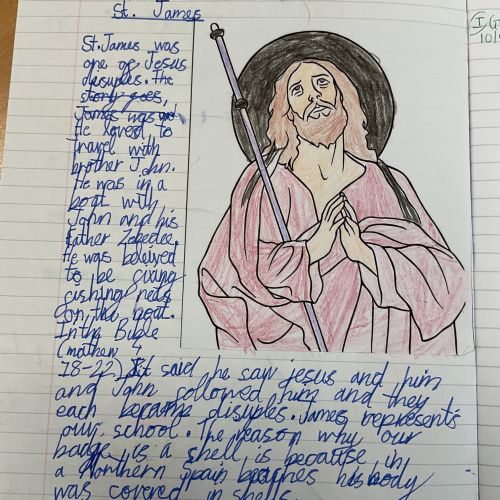 St. James
I.G
10/
St. James was
one of Jesus
disuples. The
story goes,
James was
He loved to
travel with
brother John.
He was in a
boat with
John and his
father Zebedee.
He was beleived
to be fixing
fishing nets
on the boat.
In the Bible
(mathew 4
18-22) It said he saw jesus and him
and John followed him and they
each became disuples. James represents
our school. The reason why our
badge is a shell is because in
a Northern Spain beaches his body
was covered in shells.